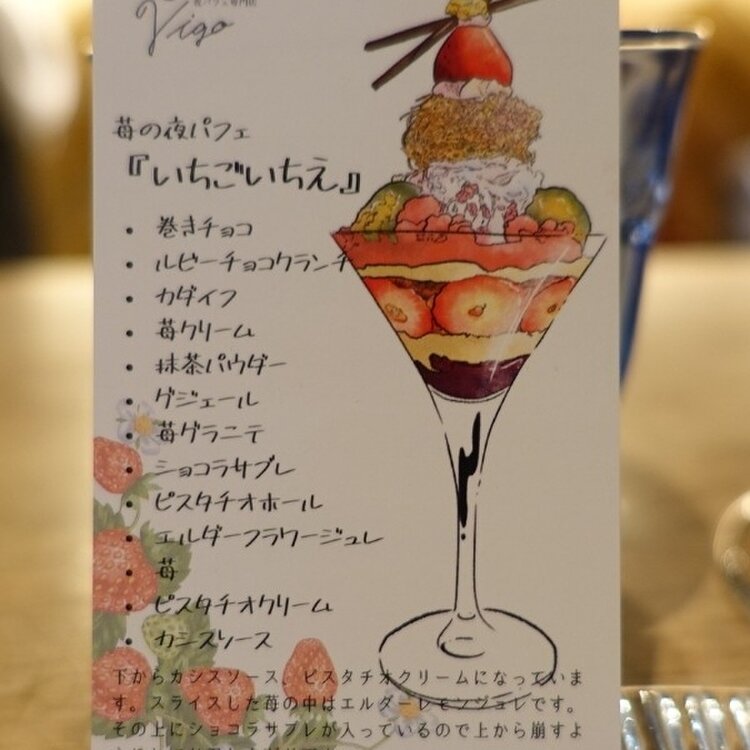 Vigo
苺の夜パフェ
『いちごいちえ』
• 巻きチョコ
• ルビーチョコクランチ
• カダイフ
• 苺クリーム
• 抹茶パウダー
• グジェール
• 苺グラニテ
• ショコラサブレ
• ピスタチオホール
• エルダーフラワージュレ
• 苺
• ピスタチオクリーム
• カシスソース
下からカシスソース、ピスタチオクリームになっていま
す。スライスした苺の中はエルダーレモンジュレです。
その上にショコラサブレが入っているので上から崩すよ